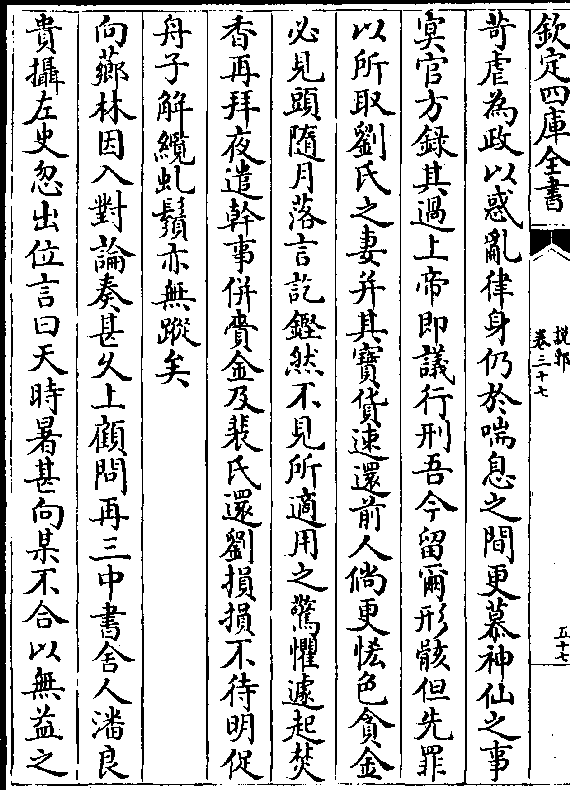 欽定四庫全書
說郛
卷三十七
五十七
苛虐為政以惑亂律身仍於喘息之間更慕神仙之事
冥官方録其過上帝即議行刑吾今留爾形骸但先罪
以所取劉氏之妻并其寳貨速還前人倘更恡色貪金
必見頭隨月落言訖鏗然不見所適用之驚懼遽起焚
香再拜夜遣幹事併賫金及裴氏還劉損損不待明促
舟子解纜虬鬚亦無蹤矣
向薌林因入對論奏甚久上顧問再三中書舍人潘良
貴攝左史忽出位言曰天時暑甚向某不合以無益之